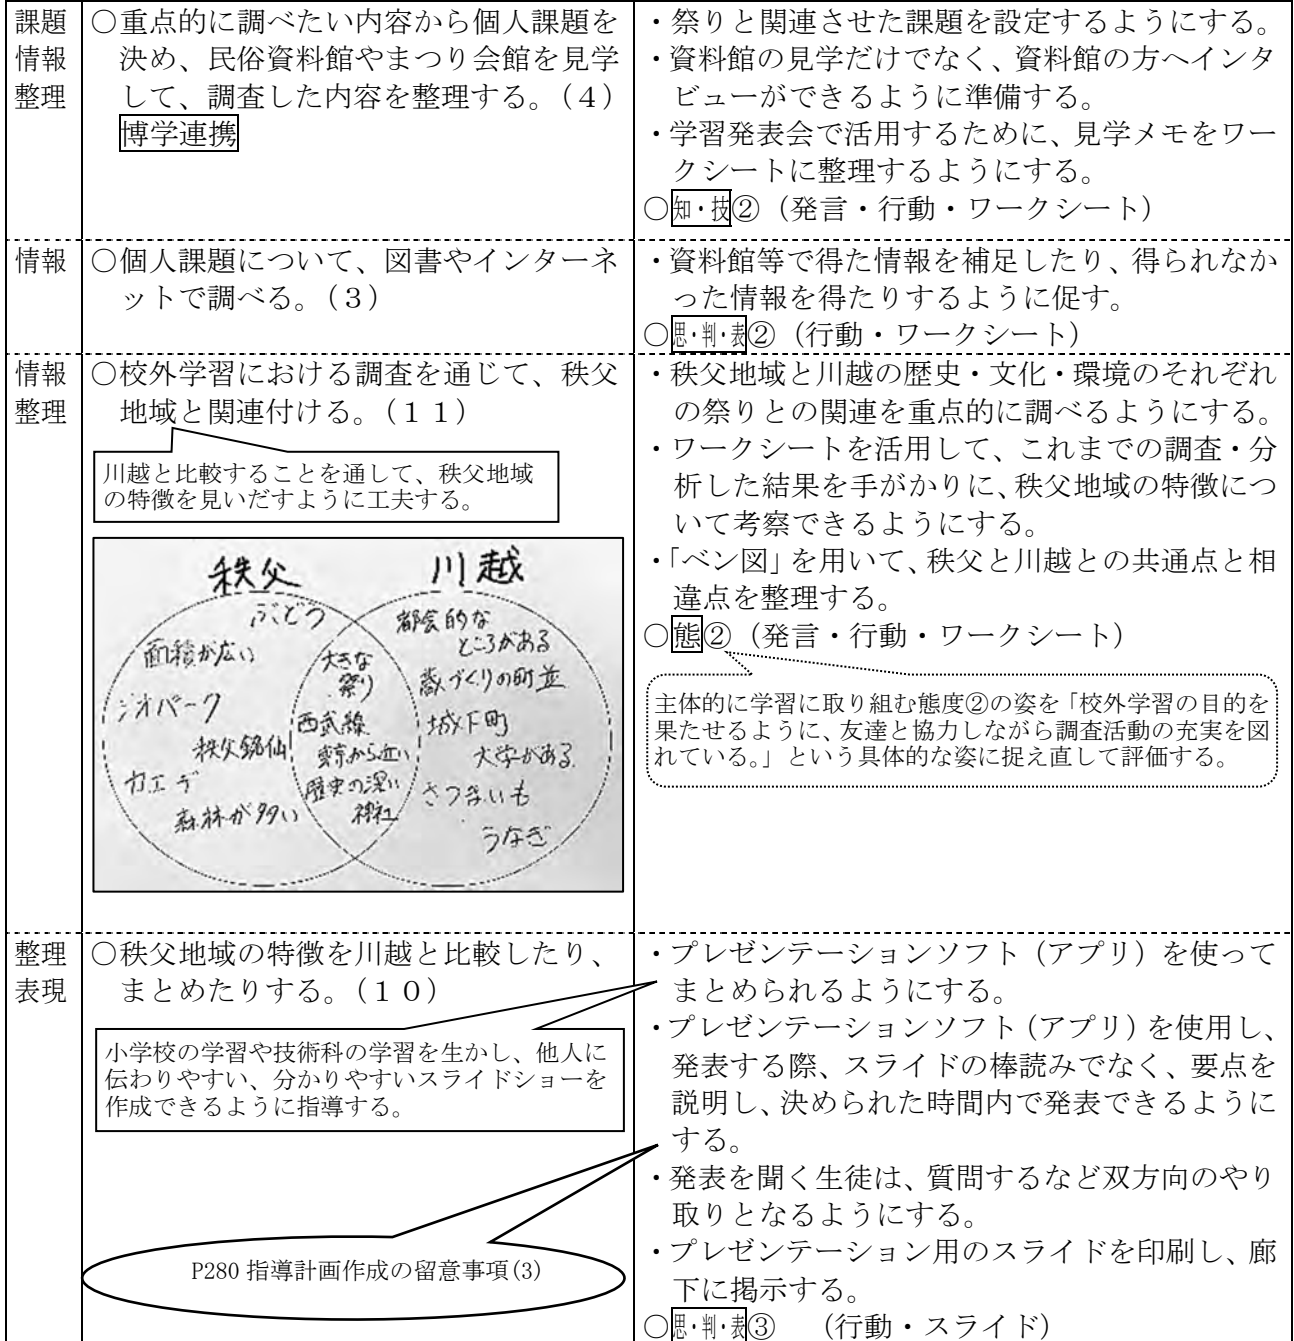 課題
情報
整理
○重点的に調べたい内容から個人課題を
決め、民俗資料館やまつり会館を見学
して、調査した内容を整理する。（４）
博学連携
・祭りと関連させた課題を設定するようにする。
・資料館の見学だけでなく、資料館の方へインタ
ビューができるように準備する。
・学習発表会で活用するために、見学メモをワー
クシートに整理するようにする。
○知・技②（発言・行動・ワークシート）
情報
○個人課題について、図書やインターネ
ットで調べる。（３）
・資料館等で得た情報を補足したり、得られなか
った情報を得たりするように促す。
○思・判・表②（行動・ワークシート）
情報
整理
○校外学習における調査を通じて、秩父
地域と関連付ける。（１１）
川越と比較することを通して、秩父地域
の特徴を見いだすように工夫する。
秩父
ぶどう
面積が広い
ジオパーク
秩父銘仙
カエデ
森林が多い
大きな
祭り
西武線
東京から近い
歴史の深い
神社
川越
都会的な
ところがある
蔵づくりの町並
城下町
大学がある
さつまいも
うなぎ
・秩父地域と川越の歴史・文化・環境のそれぞれ
の祭りとの関連を重点的に調べるようにする。
・ワークシートを活用して、これまでの調査・分
析した結果を手がかりに、秩父地域の特徴につ
いて考察できるようにする。
・「ベン図」を用いて、秩父と川越との共通点と相
違点を整理する。
○態②（発言・行動・ワークシート）
主体的に学習に取り組む態度②の姿を「校外学習の目的を
果たせるように、友達と協力しながら調査活動の充実を図
れている。」という具体的な姿に捉え直して評価する。
整理
表現
○秩父地域の特徴を川越と比較したり、
まとめたりする。（１０）
小学校の学習や技術科の学習を生かし、他人に
伝わりやすい、分かりやすいスライドショーを
作成できるように指導する。
P280 指導計画作成の留意事項(3)
・プレゼンテーションソフト（アプリ）を使って
まとめられるようにする。
・プレゼンテーションソフト（アプリ）を使用し、
発表する際、スライドの棒読みでなく、要点を
説明し、決められた時間内で発表できるように
する。
・発表を聞く生徒は、質問するなど双方向のやり
取りとなるようにする。
・プレゼンテーション用のスライドを印刷し、廊
下に掲示する。
○思・判・表③　（行動・スライド）